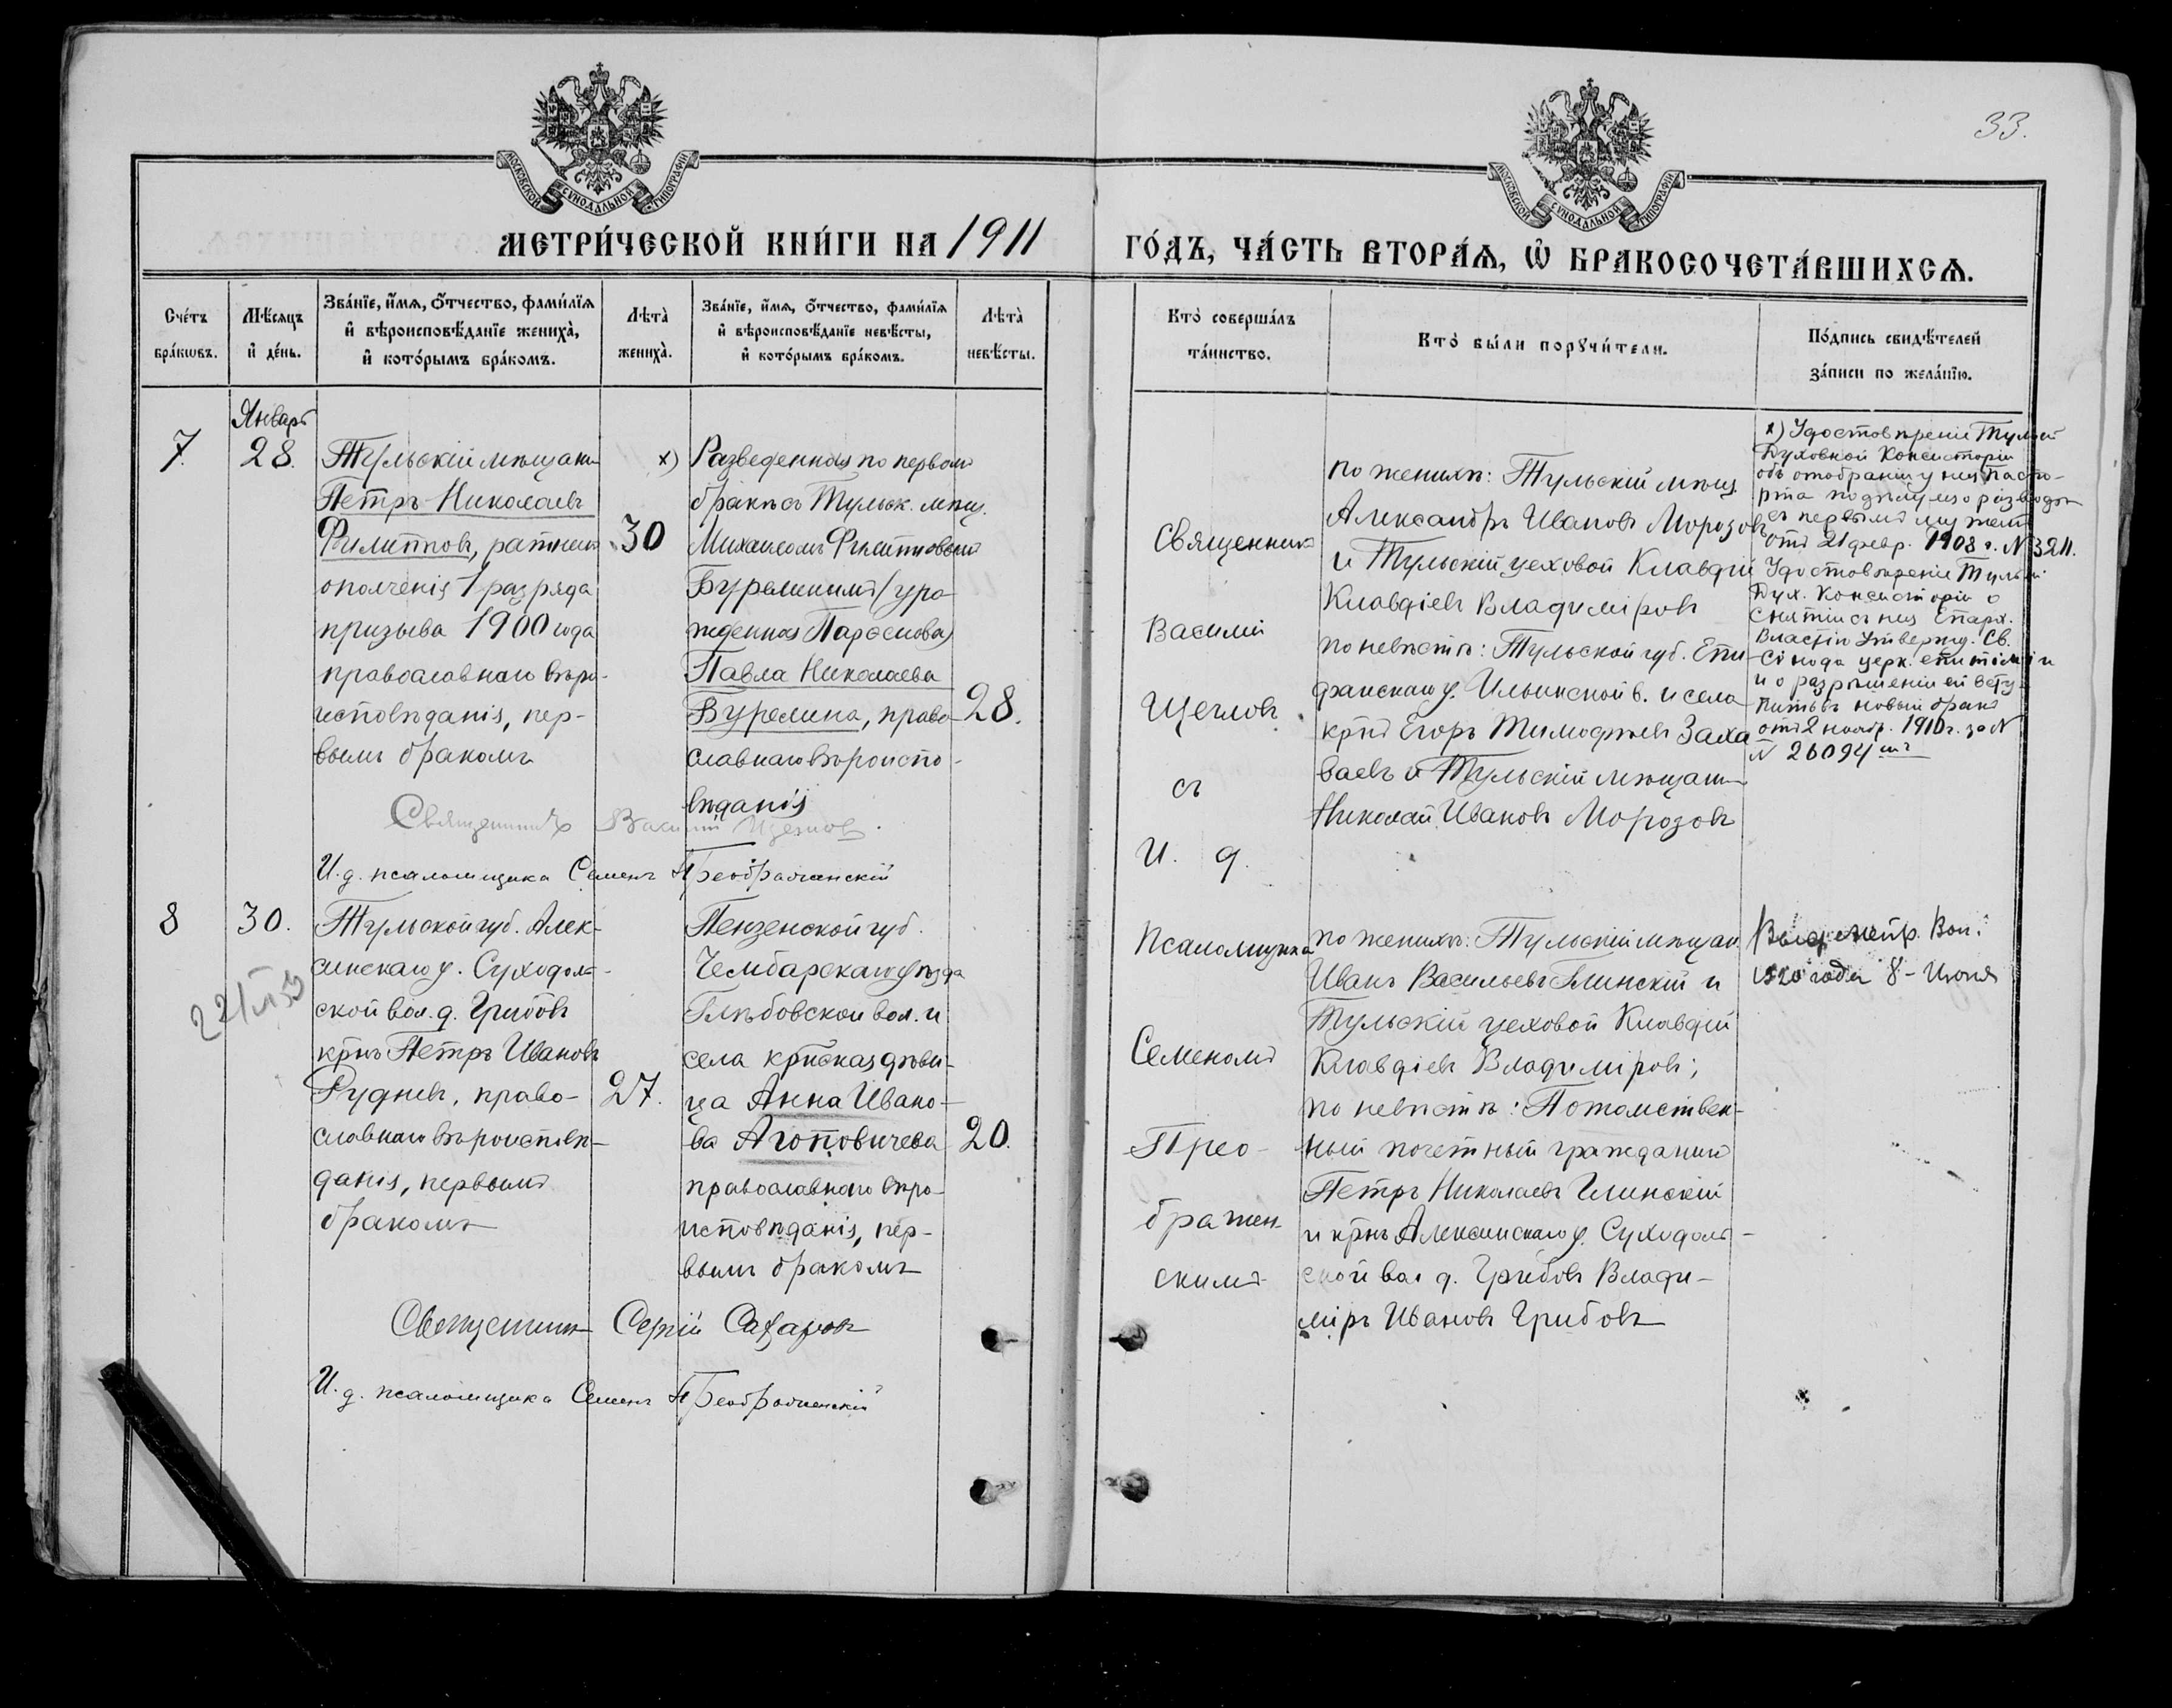 33.
МОСКОВСКОЙ СѴНОДАЛЬНОЙ ТИПОГРАФІИ
МОСКОВСКОЙ СѴНОДАЛЬНОЙ ТИПОГРАФІИ
МЕТРИ́ЧЕСКОЙ КНИ́ГИ НА 1911
ГО́ДЪ, ЧА́СТЬ ВТОРА́Ѧ, Ѽ БРАКОСОЧЕТА́ВШИХСѦ.
Сче́тъ
бра́кѡвъ.
Мѣ́сѧцъ
и҆ де́нь.
Зва́нїе, и҆́мѧ, ѻ҆́тчество, фами́лїѧ
и҆ вѣроисповѣ́данїе жениха̀,
и҆ кото́рымъ бра́комъ.
Лѣ́та
жениха̀.
Зва́нїе, и҆́мѧ, ѻ҆́тчество, фами́лїѧ
и҆ вѣроисповѣ́данїе невѣ́сты,
и҆ кото́рымъ бра́комъ.
Лѣ́та
невѣ́сты.
Кто̀ соверша́лъ
та́инство.
Кто̀ бы́ли порꙋчи́тели.
По́дпись свидѣ́телей
за́писи по жела́нїю.
7.
Январь
28.
Тульскій мѣщанин
Петръ Николаевъ
Филипповъ, ратник
ополченія 1 разряда
призыва 1900 года
православнаго вѣро-
исповѣданія, пер-
вымъ бракомъ
30
х) Разведенная по первом
бракѣ съ Тульск. мѣщ.
Михаиломъ Филипповымъ
Бурелинымъ (уро-
жденная Парѳенова)
Павла Николаева
Бурелина, право-
славнаго вѣроиспо-
вѣданія
28.
Священникъ Василій Щегловъ.
И. д. псаломщика Семенъ Преображенскій
Священник
Василій
Щегловъ
съ
И. д.
Псаломщика
Семеномъ
Прео-
бражен-
скимъ
по женихѣ: Тульскій мѣщ.
Александръ Ивановъ Морозовъ
и Тульскій цеховой Клавдій
Клавдіевъ Владиміровъ
по невѣстѣ: Тульской губ. Епи-
фанскаго у. Ильинской в. и села
крнъ Егоръ Тимофѣевъ Заха
ваевъ и Тульскій мѣщанин
Николай Ивановъ Морозовъ
х) Удостовѣреніе Тульской
Духовной Консисторіи
объ отобраніи у нея паспо-
рта по дѣлу ея о разводѣ
съ первымъ мужемъ
отъ 21 февр. 1908 г. № 3211.
Удостовѣреніе Тульской
Дух. Консисторіи о
снятіи съ нея Епарх.
Властію утвержд. Св.
Сѵнода церк. епитиміи
и о разрѣшеніи ей всту-
пить въ новый бракъ
отъ 2 ноябр. 1910 г. за №
№ 26094
8
30.
Тульской губ. Алек-
синскаго у. Суходоль-
ской вол. д. Грибовъ
крнъ Петръ Ивановъ
Рудневъ, право-
славнаго вѣроисповѣ-
данія, первымъ
бракомъ
27.
Пензенской губ.
Чембарскаго уѣзда
Глѣбовской вол. и
села крнская дѣви-
ца Анна Ивано-
ва Агоповичева
православнаго вѣро-
исповѣданія, пер-
вымъ бракомъ
20.
Священникъ Сергій Сахаровъ
И. д. псаломщика Семенъ Преображенскій
по женихѣ: Тульскій мѣщан.
Иванъ Васильевъ Глинскій и
Тульскій цеховой Клавдій
Клавдіевъ Владиміровъ;
по невѣстѣ: Потомствен-
ный почетный гражданинъ
Петръ Николаевъ Глинскій
и крнъ Алексинскаго у. Суходоль-
ской вол д. Грибовъ Влади-
міръ Ивановъ Грибовъ
Выд. метр. Вып.
1920 года 8 - Июня